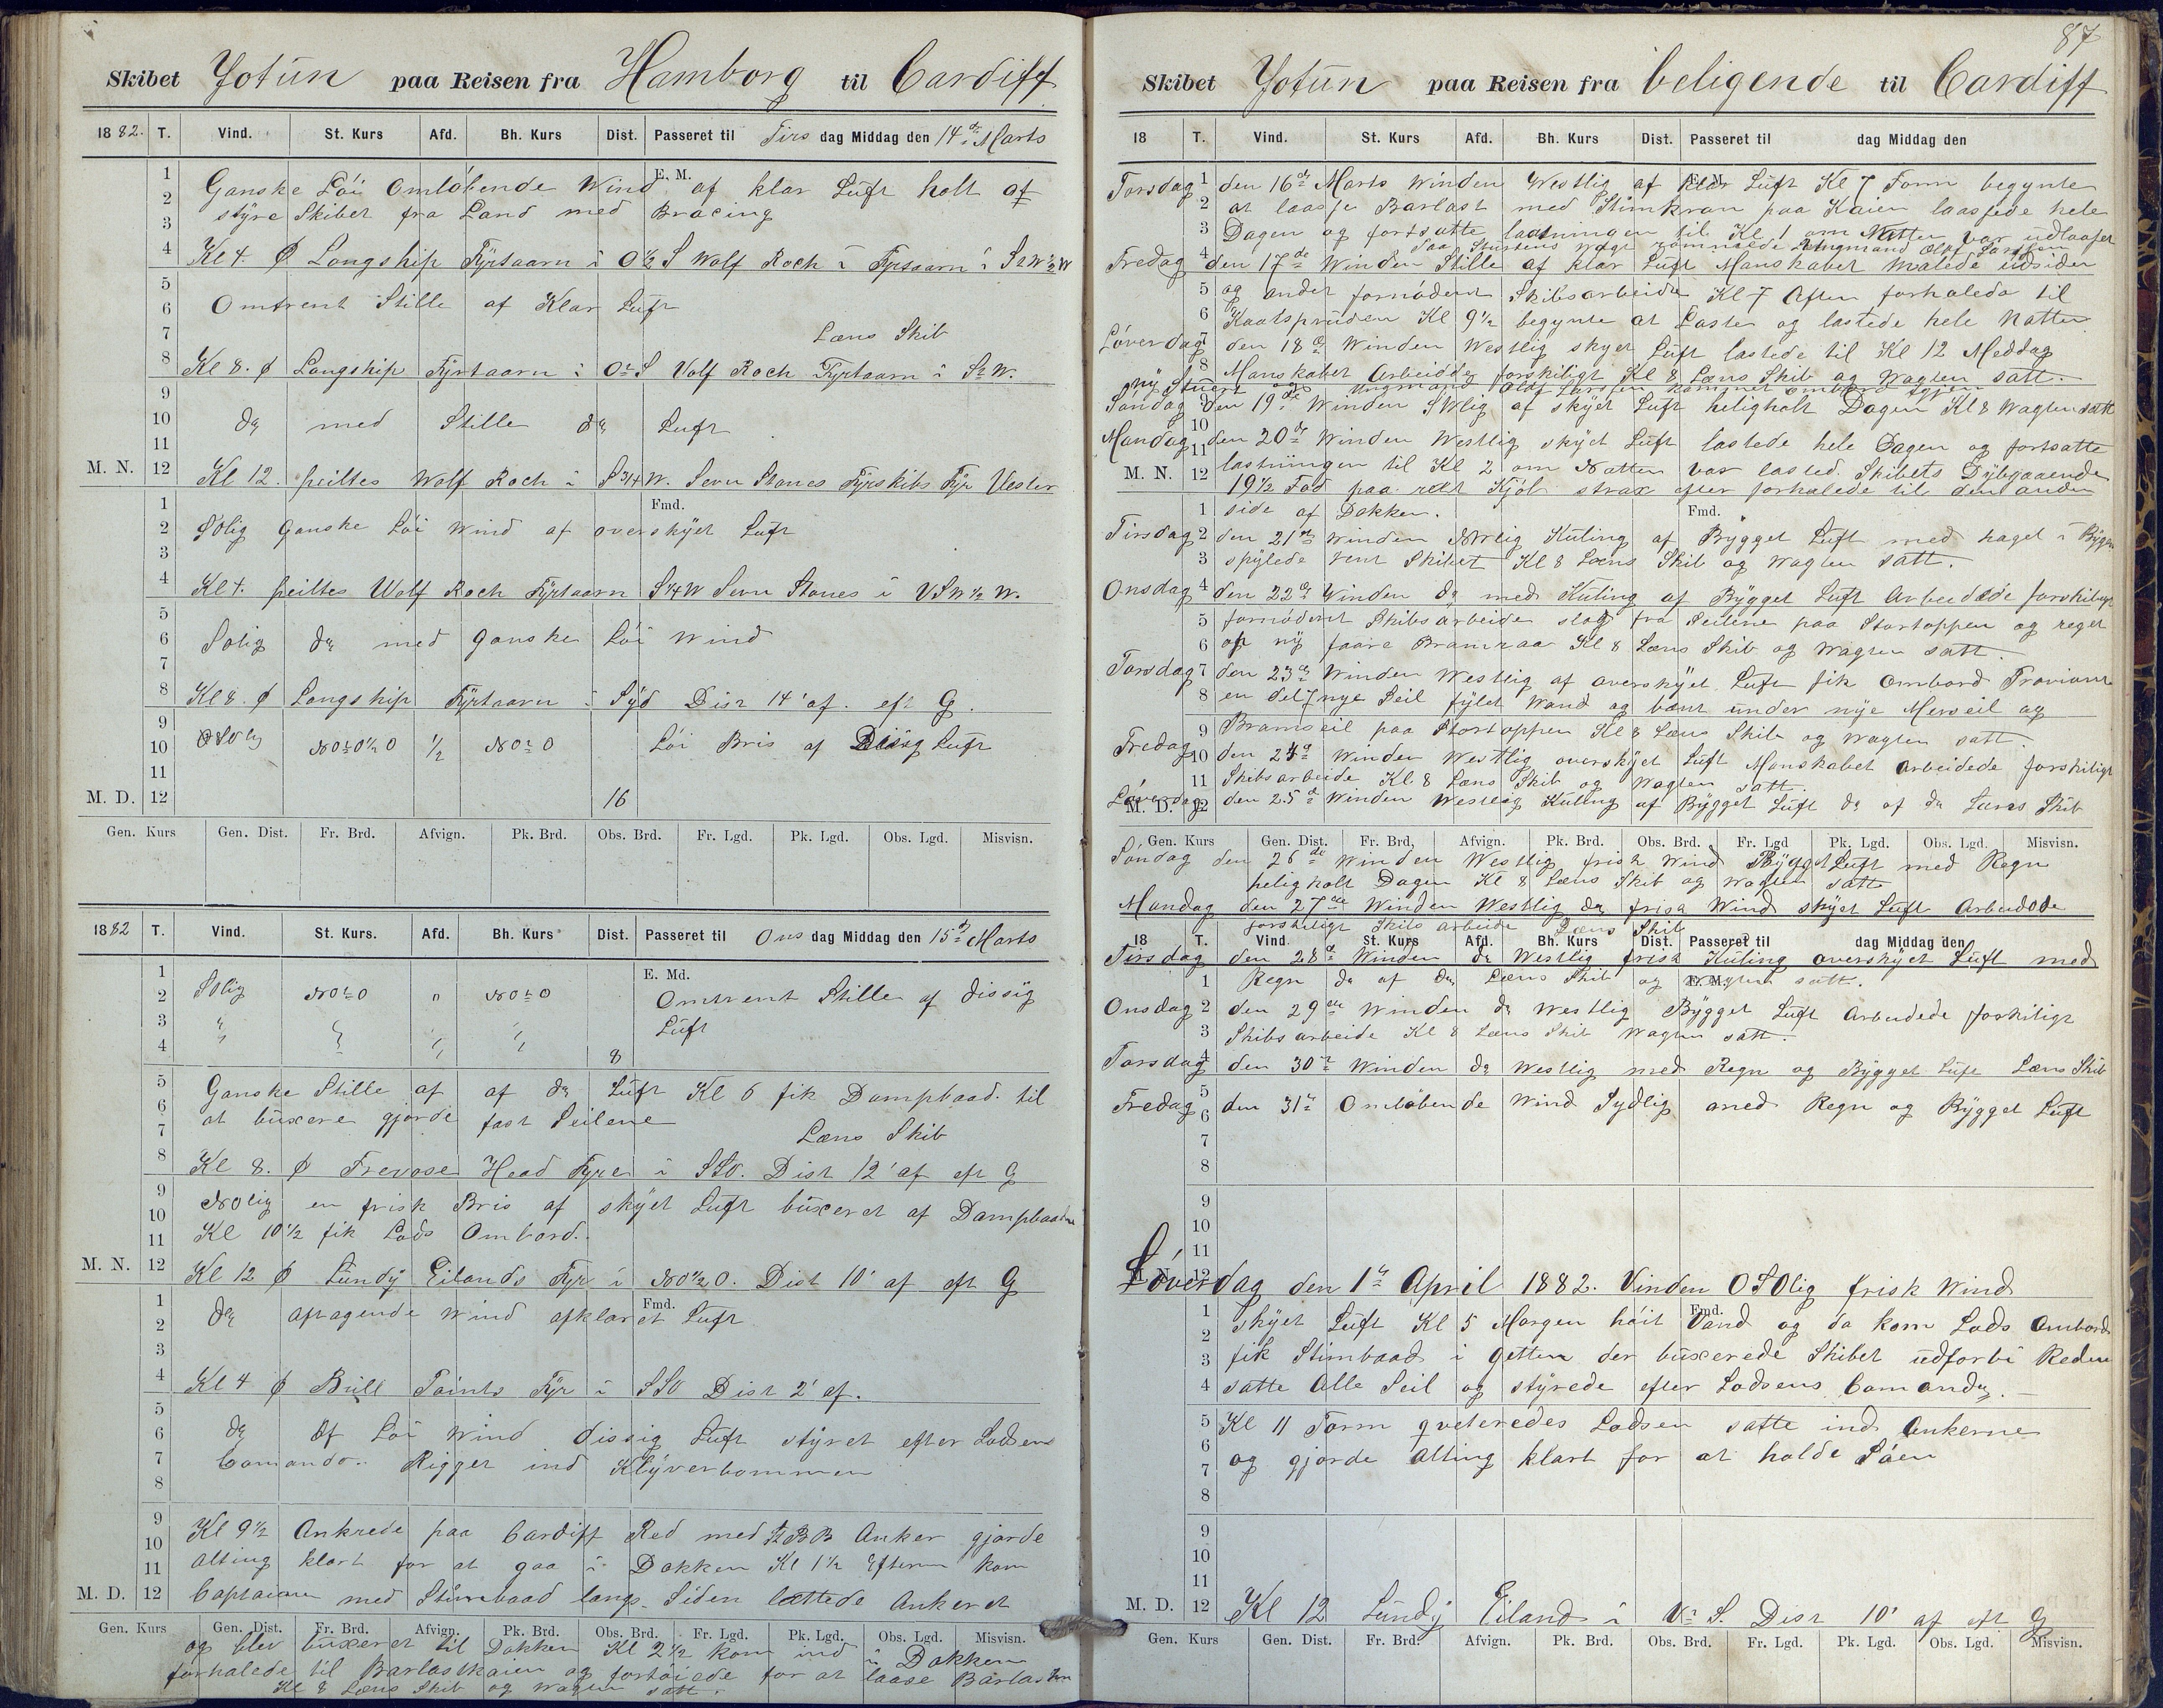 Skibet Jotun paa Reisen fra Hamborg til Cardiff
1882. T. Vind. St. Kurs Afd. Bh. Kurs Dist. Passeret til Tirs dag Middag den 14de Marts
E. M.
Ganske Löi Omlöbende Wind af klar Luft holt af
styre Skibet fra Land med Bracing
Kl 4. φ Longship Fyrtaarn i O½S Wolf Rock i Fyrtaarn i
Omtrent Stille af Klar Luft
Læns Skib
Kl 8. φ Longship Fyrtaarn i OtS Volf Rock Fyrtaarn i StW.
do med Stille do Luft
M. N. 12 Kl 12. peiltes Wolf Rock i S 3/4 W. Sevn Stones Fyrskibs Fyr Vester
Fmd.
SOlig Ganske Löi Wind af overskyet Luft
Kl 4. peiltes Wolf Rock Fyrtaarn S¼W Sevn Stones i VSW½W.
Solig do med ganske Löi Wind
Kl 8. φ Longship Fyrtaarn i Syd Dist 14' af. eft G.
OSOlig NOtO½O ½ NOtO Löi Bris af Disig Luft
M. D. 12 16
Gen. Kurs Gen. Dist. Fr. Brd. Afvign. Pk. Brd. Obs. Brd. Fr. Lgd. Pk. Lgd. Obs. Lgd. Misvisn.
1882 T. Vind. St. Kurs. Afd. Bh. Kurs Dist. Passeret til Ons dag Middag den 15de Marts
E. Md.
SOlig NOtO " NOtO Omtrent Stille af dissig
Luft
8
Ganske Stille af af do Luft Kl 6 fik Dampbaad. til
at buxere gjorde fast Seilene
Læns Skib
Kl 8. φ Trevose Head Fyre i SSO. Dist 12' af eft G
NOlig en frisk Bris af skyet Luft buxeret af Dampbaaden
Kl 10½ fik Lods Ombord.
M. N. 12 Kl 12 φ Lundy Eilands Fyr i NO½O. Dist 10' af eft G
Fmd.
do aftagende Wind afklaret Luft
Kl 4 φ Bull Points Fyr i SSO Dist 2' af.
do Af Löi Wind dissig Luft styret efter Lodsens
Comando. Rigget ind Klyverbommen
Kl 9½ Ankrede paa Cardiff Red med BB Anker gjorde
alting klart for at gaa i Dokken Kl 1½ Efterm kom
M. D. 12 Captainen med Stimbaad langs Siden lettede Ankeret
Gen. Kurs Gen. Dist. Fr. Brd. Afvign. Pk. Brd. Obs. Brd. Fr. Lgd. Pk. Lgd. Obs. Lgd. Misvisn.
og blev buxeret til Dokken Kl 2½ kom ind i Dokken
forhalede til Barlastkaien og fortöiede for at laase Barlasten
Kl 8 Læns Skib og Wagten satt.
87
Skibet Jotun paa Reisen fra beligende til Cardiff
18 T. Vind. St. Kurs Afd. Bh. Kurs Dist. Passeret til dag Middag den
Torsdag den 16de Marts Winden Westlig af klar Luft Kl 7 Form begynte
at laasse Barlast med Stimkran paa Kaien laassede hele
Dagen og fortsatte laasningen til Kl 1 om Natten var udlaaset
Paa Sturtens Wagt römmede Ungmand Oluf
Fredag den 17de Winden Stille af klar Luft Manskabet malede udsiden
og andet fornödent Skibsarbeide Kl 7 Aften forhalede til
Kl 9½ begynte at Laste og lastede hele Natten
Löverdag den 18de Winden Westlig skyet Luft lastede til Kl 12 Meddag
Manskabet Arbeidde forskiligt Kl 8 Læns Skib og Wagten satt.
ny Stuert og Ungmand Olaf Larsen kommet ombord igjen
Söndag den 19de Winden SWlig af skyet Luft heligholt Dagen Kl 8 Wagten satt
Mandag den 20de Winden Westlig skyet Luft lastede hele Dagen og fortsatte
M. N. 12 lastningen til Kl 2 om Natten var lasted. Skibets Dybgaaende
19½ Fod paa ret Kjöl strax efter forhalede til den anden
side af Dokken.
Fmd.
Tirsdag den 21de Winden NWlig Kuling af Bygget Luft med hagel i Bygen
spylede rent Skibet Kl 8 Læns Skib og Wagten satt.
Onsdag den 22de Winden do med Kuling af Bygget Luft Arbeidede forskiligt
fornödent Skibsarbeide slog fra Seilene paa Stortoppen og reget
op ny faare Bramraa Kl 8 Læns Skib og Wagten satt
Torsdag den 23de Winden Westlig af overskyet Luft fik Ombord Proviant
en del nye Seil fylet Wand og bant under nye Merseil og
Bramseil paa Stortoppen Kl 8 Læns Skib og Wagten satt.
Fredag den 24de Winden Westlig overskyet Luft Manskabet Arbeidede forskiligt
Skibsarbeide Kl. 8 Læns Skib og Wagten satt.
Löverdag den 25de Winden Westlig Kuling af Bygget Luft do af do Læns Skib
Gen. Kurs Gen. Dist. Fr. Brd, Afvign. Pk. Brd. Obs. Brd. Fr. Lgd Pk. Lgd. Obs. Lgd. Misvisn.
Söndag den 26de Winden Westlig frisk Wind Bygget Luft med Regn
heligholt Dagen Kl 8 Læns Skib og Wagten satt
Mandag den 27de Winden Westlig do frisk Wind skyet Luft Arbeidede
forskiligt Skibs arbeide Læns Skib
18 T. Vind. St. Kurs Afd. Bh. Kurs Dist. Passeret til dag Middag den
Tirsdag den 28de Winden do Westlig frisk Kuling overskyet Luft med
Regn do af do Læns Skib og Wagten satt.
Onsdag den 29de Winden do Westlig Bygget Luft Arbeidede forskiligt
Skibsarbeide Kl 8 Læns Skib Wagten satt.
Torsdag den 30te Winden do Westlig med Regn og Bygget Luft Læns Skib
Fredag den 31te Omlöbende Wind Sydlig med Regn og Bygget Luft
Löverdag den 1te April 1882. Vinden OSOlig frisk Wind
Fmd.
skyet Luft Kl 5 Morgen höit Vand og da kom Lods Ombord
fik Stimbaad i Getten der buxerede Skibet udforbi Reden
satte Alle Seil og styrede efter Lodsens Comando.
Kl 11 Form qveteredes Lodsen satte ind Ankerne
og gjorde Alting klart for at holde Söen
M. D. 12 Kl 12 Lundy Eiland i VtS. Dist 10' af eft G
Gen. Kurs Gen. Dist. Fr. Brd. Afvign. Pk. Brd. Obs. Brd. Fr. Lgd. Pk. Lgd. Obs. Lgd. Misvisn.